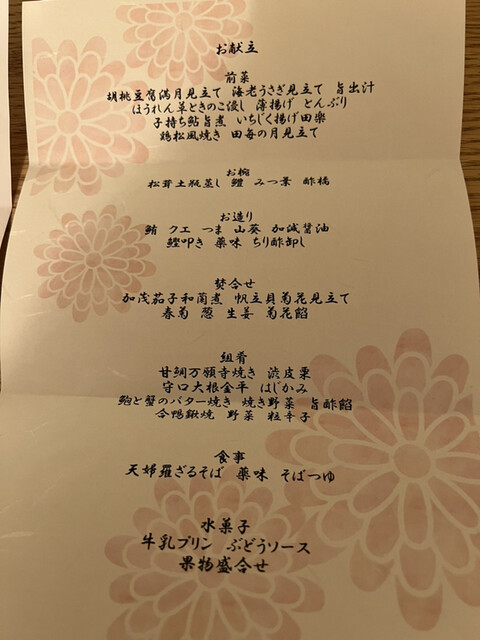 お献立
前菜
胡桃豆腐満月見立て 海老うさぎ見立て 旨出汁
ほうれん草ときのこ浸し 薄揚げ とんぶり
子持ち鮎旨煮 いちじく揚げ田楽
鶏松風焼き 田毎の月見立て
お椀
松茸土瓶蒸し 鱧 みつ葉 酢橘
お造り
鮪 クエ つま 山葵 加減醤油
鰹叩き 薬味 ちり酢卸し
焚合せ
加茂茄子和蘭煮 帆立貝菊花見立て
春菊 葱 生姜 菊花餡
組肴
甘鯛万願寺焼き 渋皮栗
守口大根金平 はじかみ
鮑と蟹のバター焼き 焼き野菜 旨酢餡
合鴨鍬焼 野菜 粒辛子
食事
天婦羅ざるそば 薬味 そばつゆ
水菓子
牛乳プリン ぶどうソース
果物盛合せ